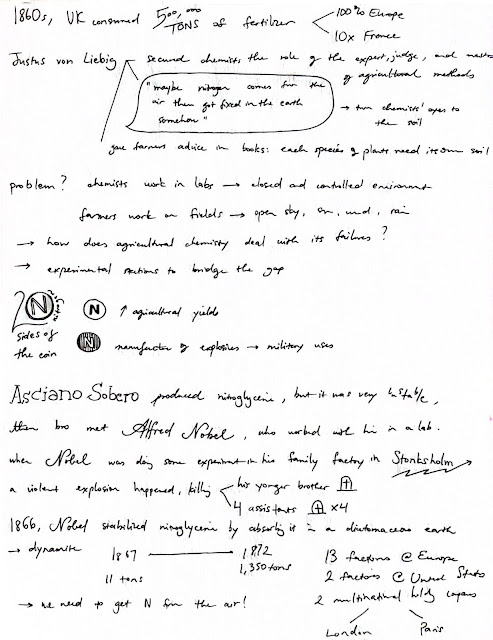 1860s, UK consumed 500,000 TONS of fertilizer
100% Europe
10x France
Justus von Liebig
secured chemists the role of the expert, judge, and master of agricultural methods
"maybe nitrogen comes from the
air then got fixed in the earth
somehow"
→ turn chemists' eyes to
the soil
gave farmers advice in books: each species of plants need its own soil
problem? chemists work in labs → closed and controlled environment
farmers work on fields → open sky, sun, wind, rain
→ how does agricultural chemistry deal with its failures?
→ experimental stations to bridge the gap
2 sides of
the coin
N
nitrogen
N ↑ agricultural yields
N manufacture of explosives → military uses
Asciano Sobero produced nitroglycerine, but it was very unstable,
then bro met Alfred Nobel, who worked with him in a lab.
when Nobel was doing some experiment in his family factory in Stonksholm
a violent explosion happened, killing
his yonger brother
4 assistants x4
1866, Nobel stabilized nitroglycerin by absorbing it in a diatomaceous earth
→ dynamite
1867 1872
11 tons 1,350 tons
13 factories @ Europe
2 factories @ United States
2 multinational holding companies
London Paris
→ we need to get N from the air!